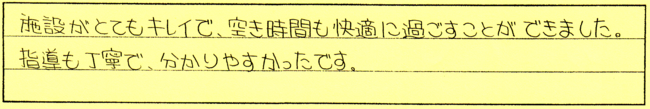 施設がとてもキレイで、空き時間も快適に過ごすことができました。
指導も丁寧で、分かりやすかったです。